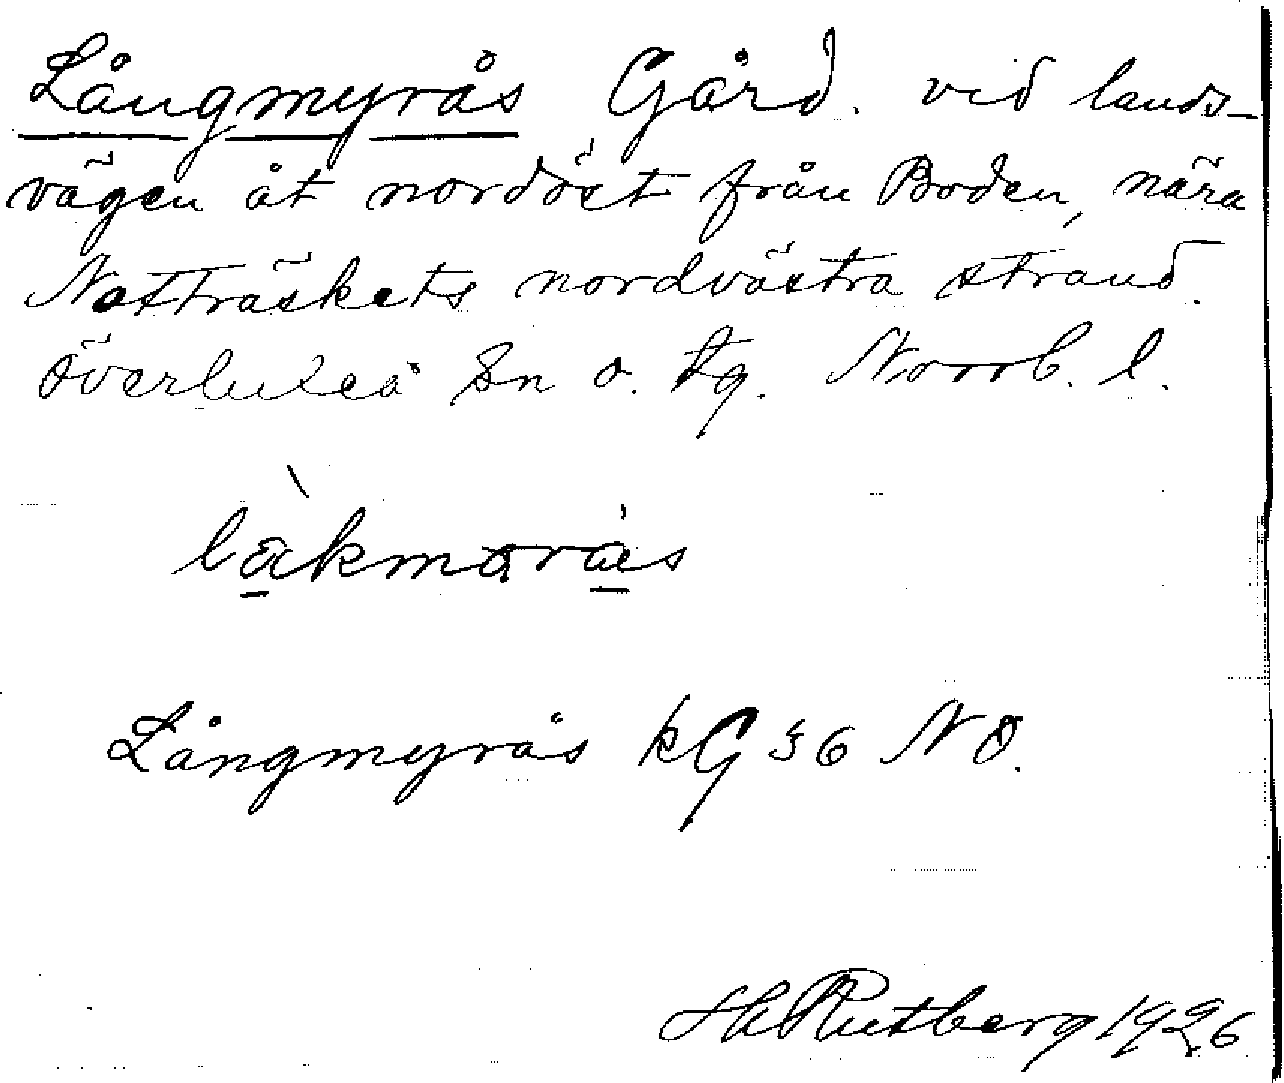 Långmyrås Gård. vid lands-
vägen åt nordöst från Boden, nära
Notträskets nordvästra strand.
Överluleå Sn o. tg. Norrb. l.
Långmyrås kG 36 NO.
Rutberg 1926